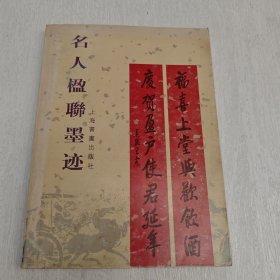 名人楹聯墨迹
上海書畫出版社
福喜上堂與歡飲酒
慶賀盈戸使君延年